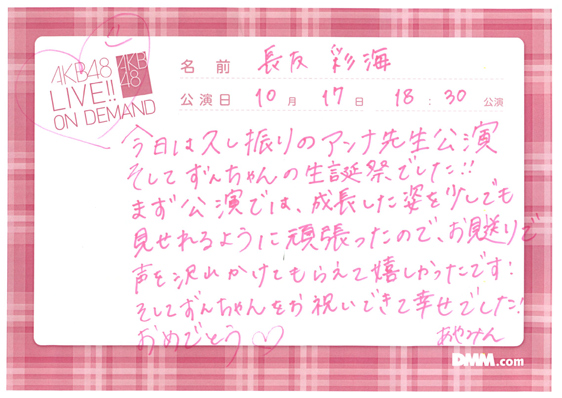 AKB48
LIVE!!
ON DEMAND
AKB
48
名前 長友 彩海
公演日 10月 17日 18:30 公演
今日は久し振りのアンナ先生公演
そしてずんちゃんの生誕祭でした!!
まず公演では、成長した姿を少しでも
見せれるように頑張ったので、お見送りで
声を沢山かけてもらえて嬉しかったです!
そしてずんちゃんをお祝いできて幸せでした!
おめでとう♡
あやみん
DMM.com